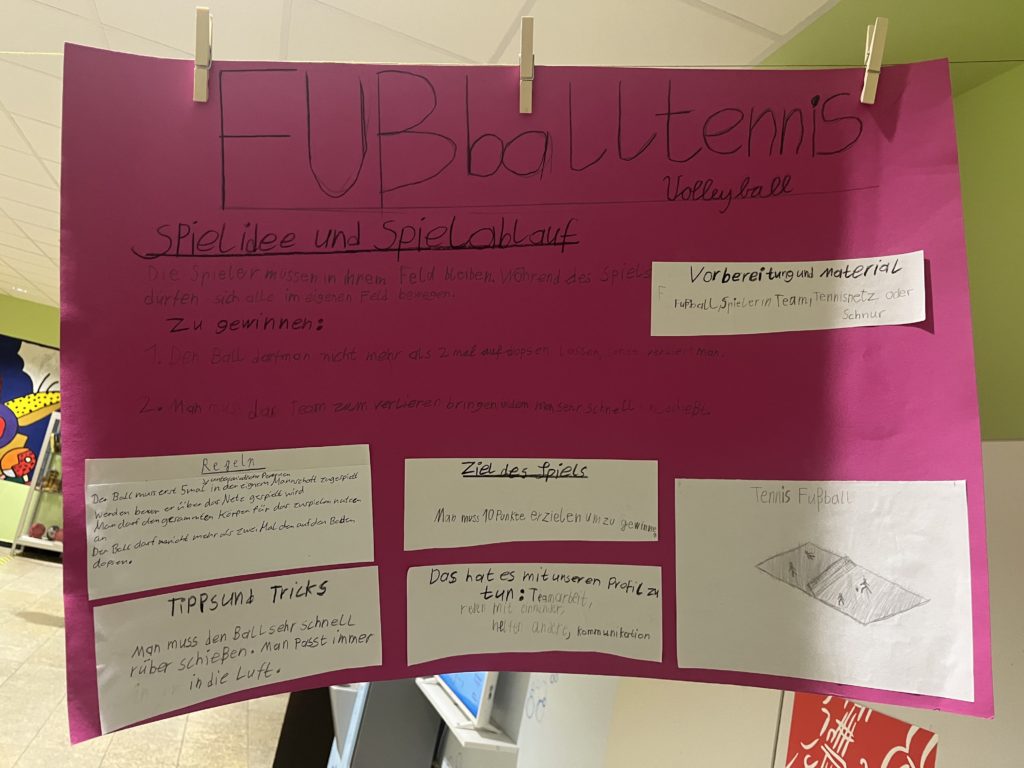 FUßballtennis
Volleyball
Spielidee und Spielablauf
Die Spieler müssen in ihrem Feld bleiben. Während des Spiels
dürfen sich alle im eigenen Feld bewegen.
Vorbereitung und Material
Fußball, Spieler in Team, Tennisnetz oder
Schnur
Zu gewinnen:
1. Den Ball darf man nicht mehr als 2 mal aufdopsen lassen, sonst verliert man.
2. Man muss das Team zum verlieren bringen indem man sehr schnell schießt.
Regeln
Der Ball muss erst 5mal in der eignem Mannschaft zugespielt
werden bevor er über das Netz gespielt wird
Man darf den gesammten Körper für das zuspielen
an
Der Ball darf nicht mehr als zwei Mal den auf den Boden
dopsen.
Ziel des Spiels
Man muss 10 Punkte erzielen um zu gewinne
Tennis Fußball
Tipps und Tricks
Man muss den Ball sehr schnell
rüber schießen. Man passt immer
in die Luft.
Das hat es mit unseren Profil zu
tun: Teamarbeit,
reden mit einander,
helfen andere, kommunikation